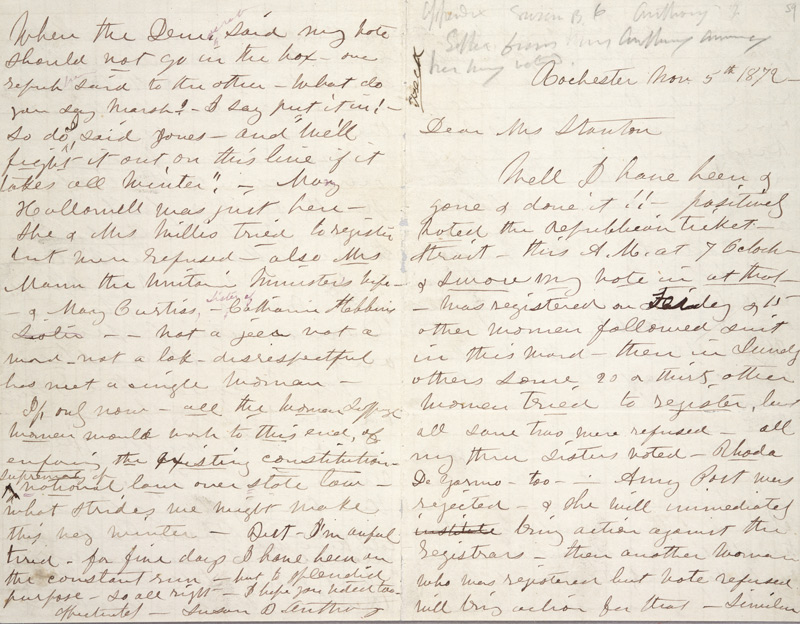 59
Susan B. Anthony
Letter from Miss Anthony
her vote
Rochester Nov 5th 1872
Dear Mrs Stanton
Well I have been &
gone & done it !! - positively
voted the Republican ticket -
strait - this A.M. at 7 Oclock
& swore my vote in at that -
- was registered on Friday & 15
other women followed suit
in this ward - then in Sunday
others some 20 or thirty other
women tried to register, but
all save two were refused - all
my three sisters voted - Rhoda
De Garmo - too - Amy Post was
rejected - & she will immediately
institute bring action against the
registrars - then another woman
who was registered but vote refused
will bring action for that - Similar
When the Democrat said my vote
should not go in the box - one
repub said to the other - What do
you say Marsh? - I say put it in! -
So do I, said Jones - and "we'll
fight it out on this line if it
takes all winter" - Mary
Hallowell was just here -
She & Mrs Willis tried to register
but were refused - also Mrs
Mann the Unitarian Ministers wife -
- & Mary Curtiss - sister of Catharine Stebbins
- not a jeer not a
word - not a look - disrespectful
has met a single woman -
If only now - all the Woman Suffrage
women would work to this end, of
enforcing the existing constitution -
supremacy of
national law over state law -
what strides we might make
this winter - But - I'm awful
tired - for five days I have been on
the constant run - but to splendid
purpose - So all right - I hope you voted too -
Affectionately - Susan B. Anthony